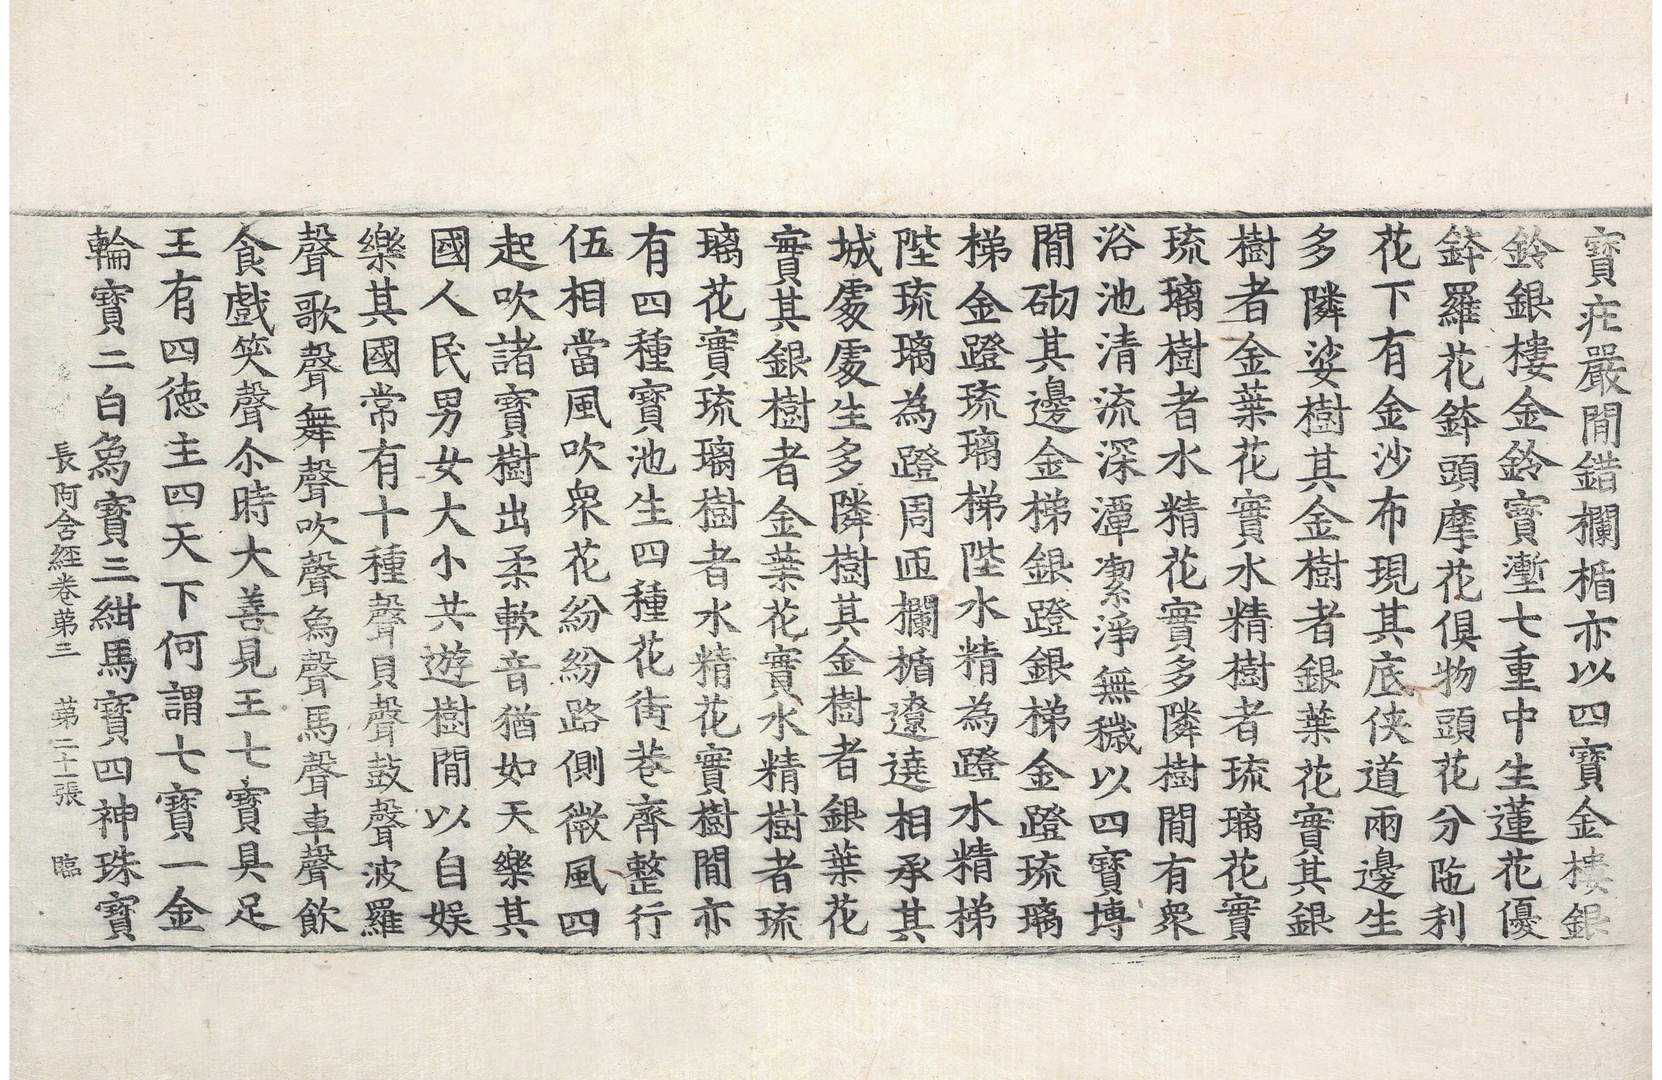 寶疘嚴閒錯欄楯亦以四寶金樓銀
鈴銀樓金鈴寶壍七重中生蓮花優
鉢羅花鉢頭摩花俱物頭花分陁利
花下有金沙布現其底俠道兩邊生
多隣娑樹其金樹者銀葉花實其銀
樹者金葉花實水精樹者琉璃花實
琉璃樹者水精花實多隣樹閒有衆
浴池清流深潭㓗淨無穢以四寶塼
閒砌其邊金梯銀蹬銀梯金蹬琉璃
梯金蹬琉璃梯陛水精為蹬水精梯
陛琉璃為蹬周匝欄楯遼遶相承其
城處處生多隣樹其金樹者銀葉花
實其銀樹者金葉花實水精樹者琉
璃花實琉璃樹者水精花實樹閒亦
有四種寶池生四種花街巷齊整行
伍相當風吹衆花紛紛路側微風四
起吹諸寶樹出柔軟音猶如天樂其
國人民男女大小共遊樹閒以自娛
樂其國常有十種聲貝聲鼓聲波羅
聲歌聲舞聲吹聲爲聲馬聲車聲飲
食戲笑聲尒時大善見王七寶具足
王有四德主四天下何謂七寶一金
輪寶二白爲寶三紺馬寶四神珠寶
長阿含經卷苐三 苐二十一張 臨